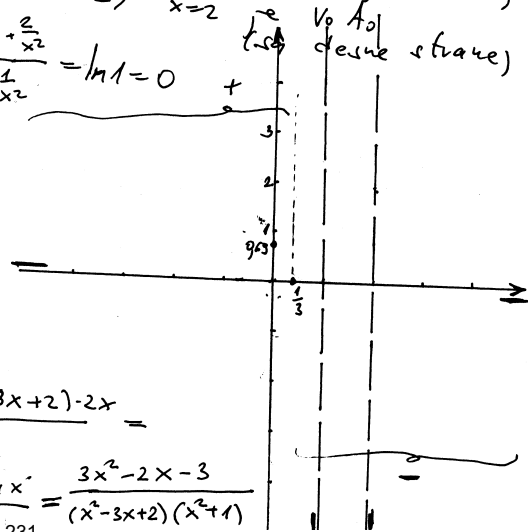 x=2
V₀ A₀
(sa desne strane)
+ 2/x²
1
x²
= ln1 = 0
+
3
2
1
0,69
1/3
3x+2)-2x =
−
= (3x²-2x-3)/((x²-3x+2)(x²+1))
231